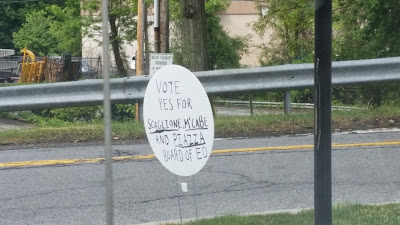 VOTE
YES FOR
SCAGLIONE, McCABE
AND PIAZZA
BOARD OF ED